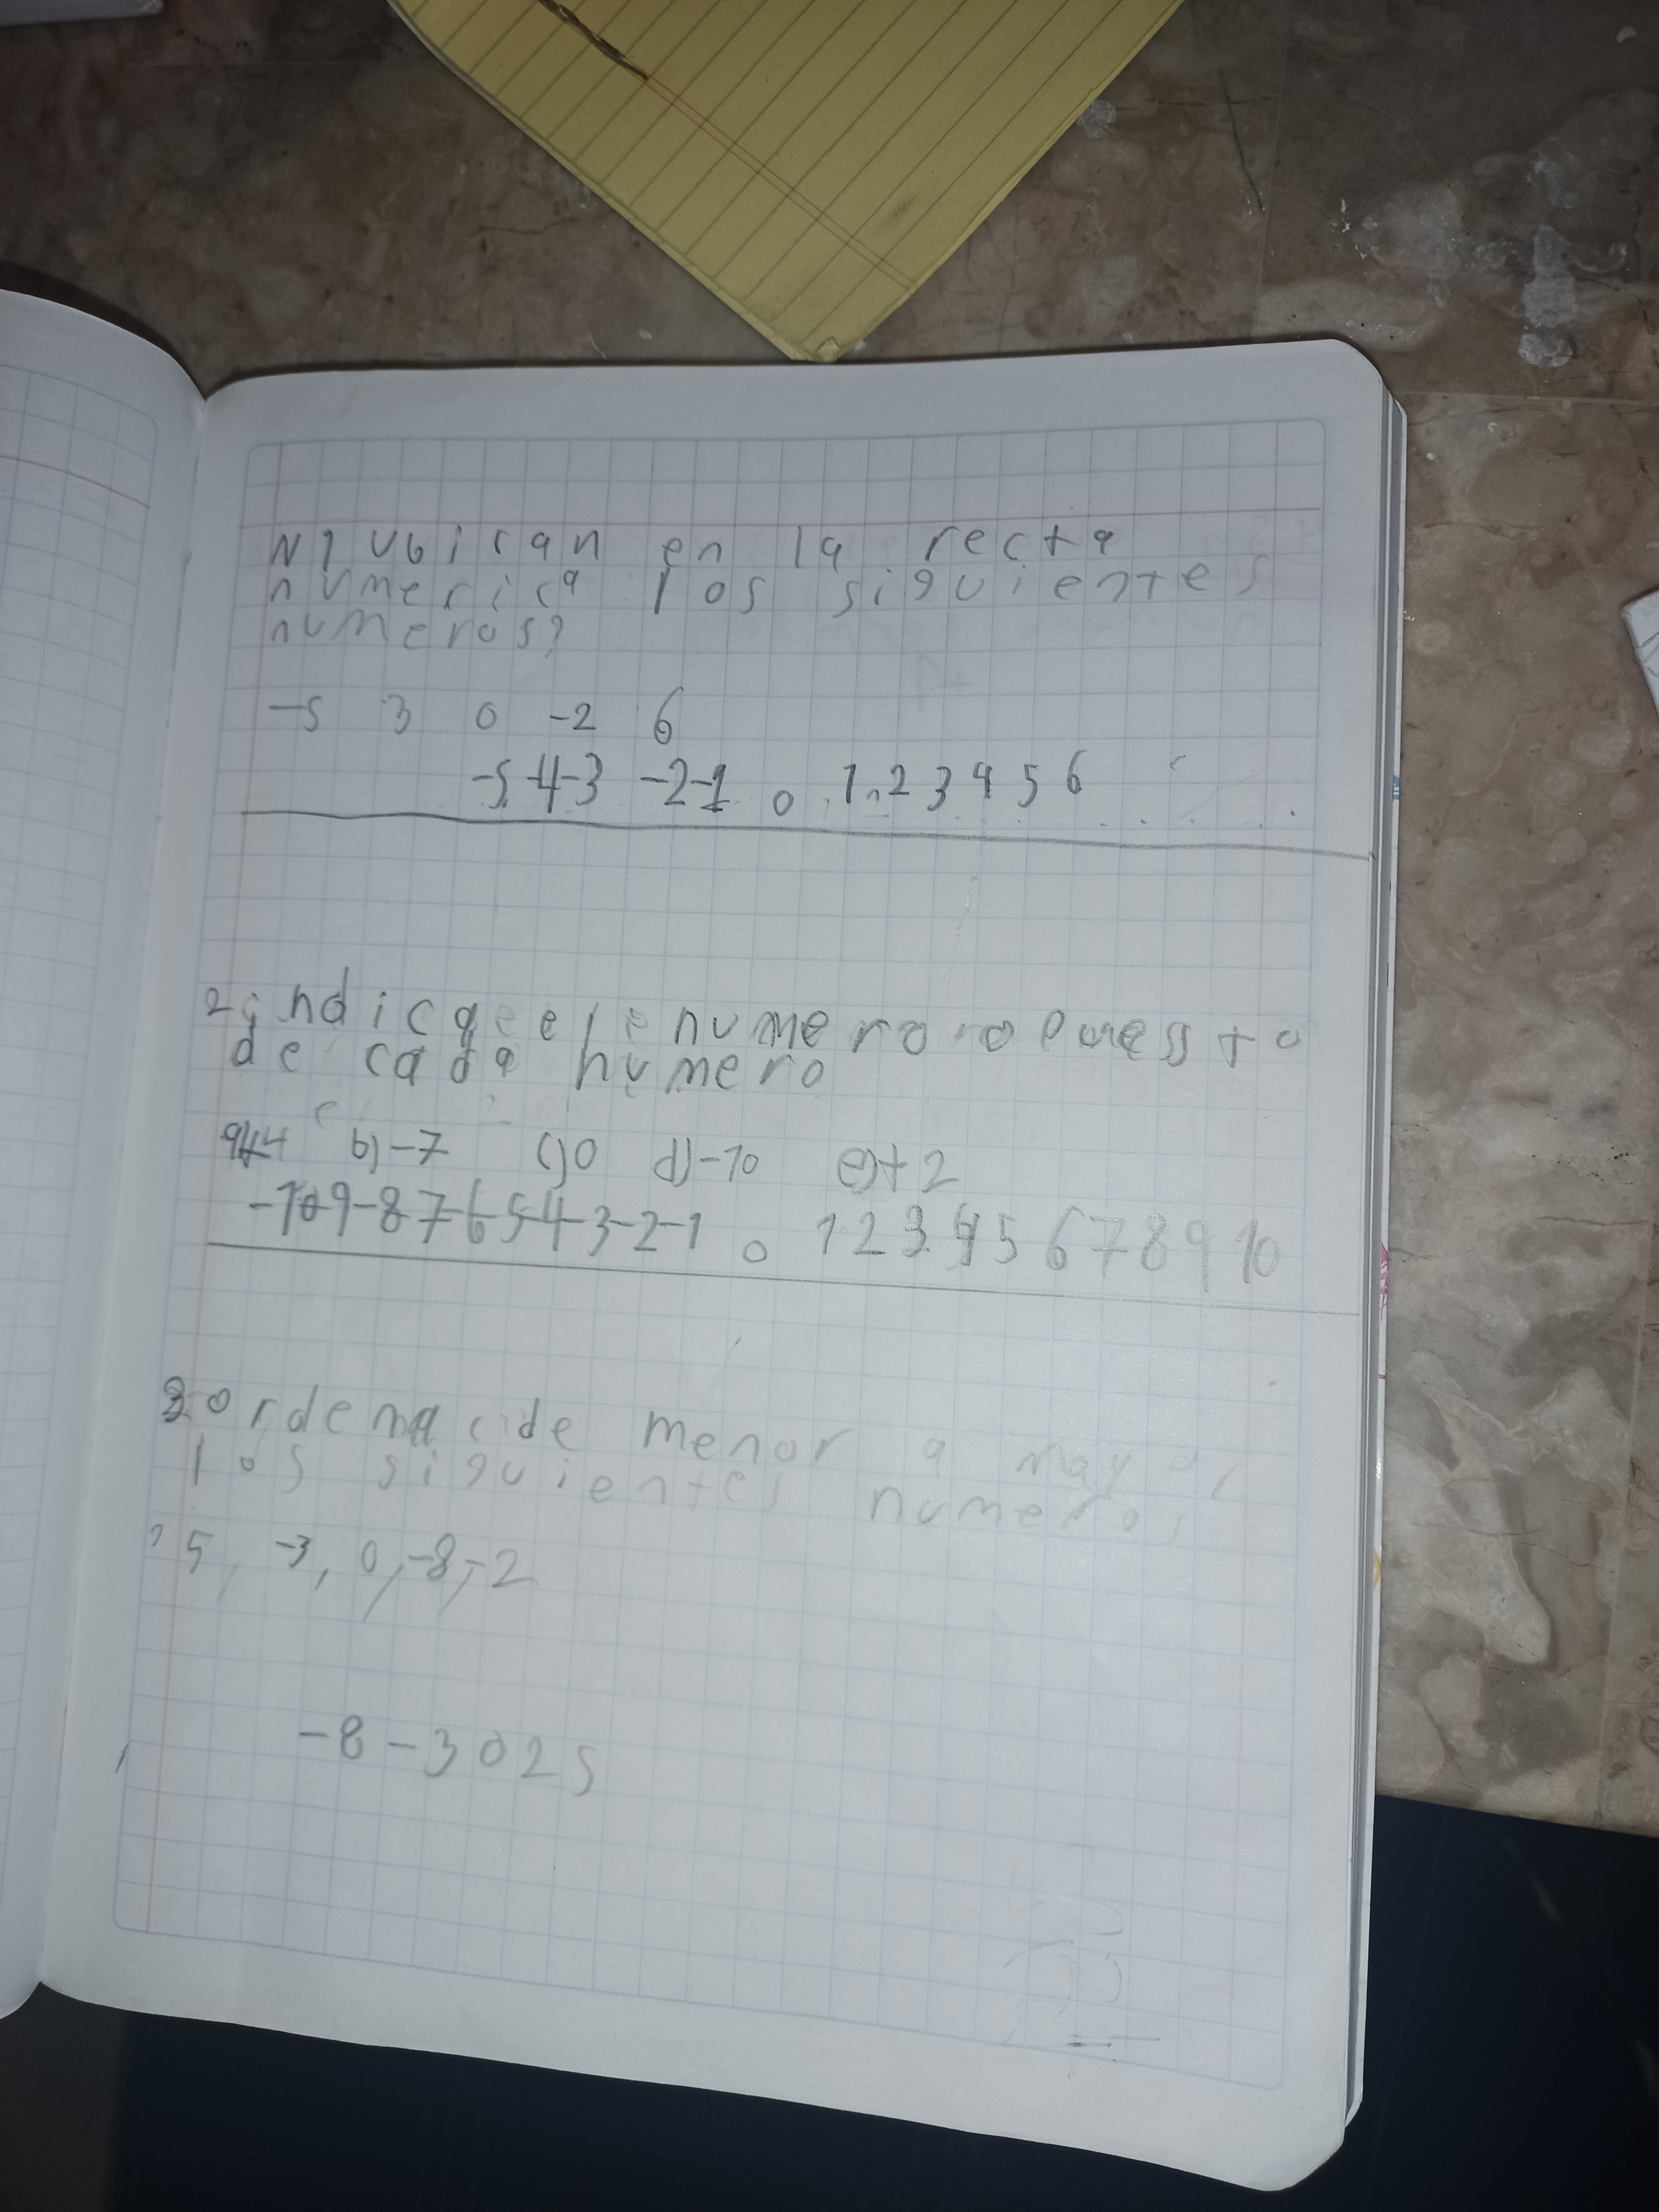 N1 ubican en la recta
numerica los siguientes
numeros?
-5 3 0 -2 6
-5-4-3 -2-1 0 1 2 3 4 5 6
2 indicqe el numero opuesto
de cada numero
a)+4 b)-7 c)0 d)-10 e)+2
-10-9-8-7-6-5-4-3-2-1 0 1 2 3 4 5 6 7 8 9 10
3 ordena de menor a mayor
los siguientes numeros
5, -3, 0, -8, -2
-8 -3 0 2 5